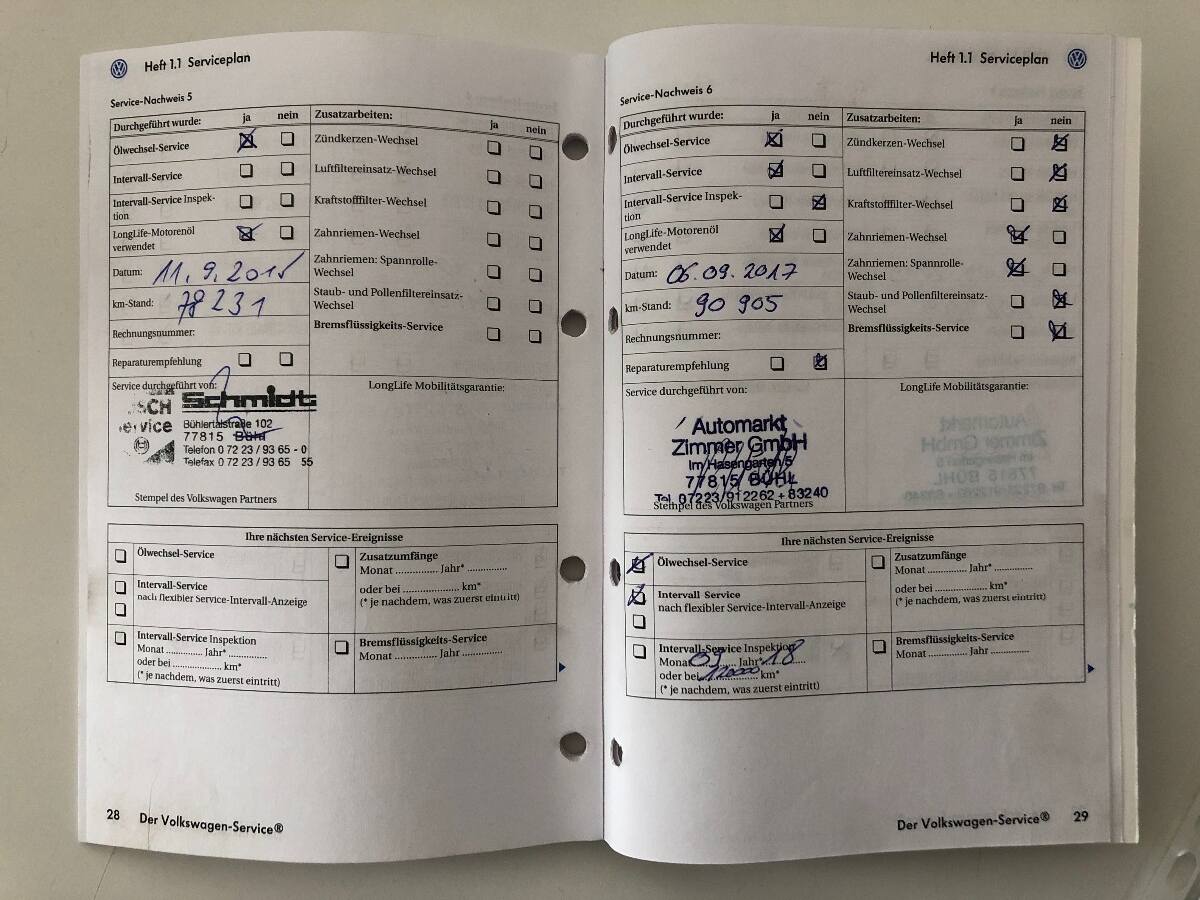 Heft 1.1 Serviceplan
Service-Nachweis 5
Durchgeführt wurde: ja nein Zusatzarbeiten: ja nein
Ölwechsel-Service Zündkerzen-Wechsel
Intervall-Service Luftfiltereinsatz-Wechsel
Intervall-Service Inspek-
tion
Kraftstofffilter-Wechsel
LongLife-Motorenöl
verwendet
Zahnriemen-Wechsel
Datum: 11.9.2015
Zahnriemen: Spannrolle-
Wechsel
km-Stand: 78 231
Staub- und Pollenfiltereinsatz-
Wechsel
Rechnungsnummer:
Bremsflüssigkeits-Service
Reparaturempfehlung
Service durchgeführt von:
LongLife Mobilitätsgarantie:
Schmidt
Bühlertalstraße 102
77815 Bühl
Telefon 0 72 23 / 93 65 - 0
Telefax 0 72 23 / 93 65 55
Stempel des Volkswagen Partners
Ihre nächsten Service-Ereignisse
Ölwechsel-Service
Zusatzumfänge
Monat ............... Jahr* ..............
oder bei ..................... km*
(* je nachdem, was zuerst eintritt)
Intervall-Service
nach flexibler Service-Intervall-Anzeige
Intervall-Service Inspektion
Monat ............. Jahr* ...................
oder bei ................... km*
(* je nachdem, was zuerst eintritt)
Bremsflüssigkeits-Service
Monat ............... Jahr ................
28 Der Volkswagen-Service®
Heft 1.1 Serviceplan
Service-Nachweis 6
Durchgeführt wurde: ja nein Zusatzarbeiten: ja nein
Ölwechsel-Service Zündkerzen-Wechsel
Intervall-Service Luftfiltereinsatz-Wechsel
Intervall-Service Inspek-
tion
Kraftstofffilter-Wechsel
LongLife-Motorenöl
verwendet
Zahnriemen-Wechsel
Datum: 06.09.2017
Zahnriemen: Spannrolle-
Wechsel
km-Stand: 90 905
Staub- und Pollenfiltereinsatz-
Wechsel
Rechnungsnummer:
Bremsflüssigkeits-Service
Reparaturempfehlung
Service durchgeführt von:
LongLife Mobilitätsgarantie:
Automarkt
Zimmer GmbH
Im Hasengarten 5
77815 BÜHL
Tel. 07223/912262 + 83240
Stempel des Volkswagen Partners
Ihre nächsten Service-Ereignisse
Ölwechsel-Service
Zusatzumfänge
Monat ............... Jahr* ..............
oder bei ..................... km*
(* je nachdem, was zuerst eintritt)
Intervall Service
nach flexibler Service-Intervall-Anzeige
Intervall-Service Inspektion
Monat 09 Jahr* 18
oder bei 12000 km*
(* je nachdem, was zuerst eintritt)
Bremsflüssigkeits-Service
Monat ............... Jahr ................
Der Volkswagen-Service® 29